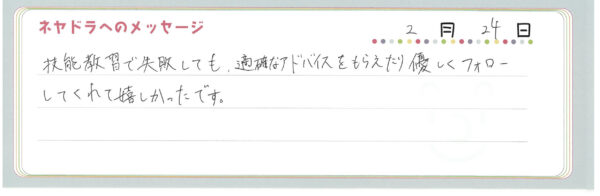 ネヤドラへのメッセージ
2 月 24 日
技能教習で失敗しても、適確なアドバイスをもらえたり優しくフォロー
してくれて嬉しかったです。